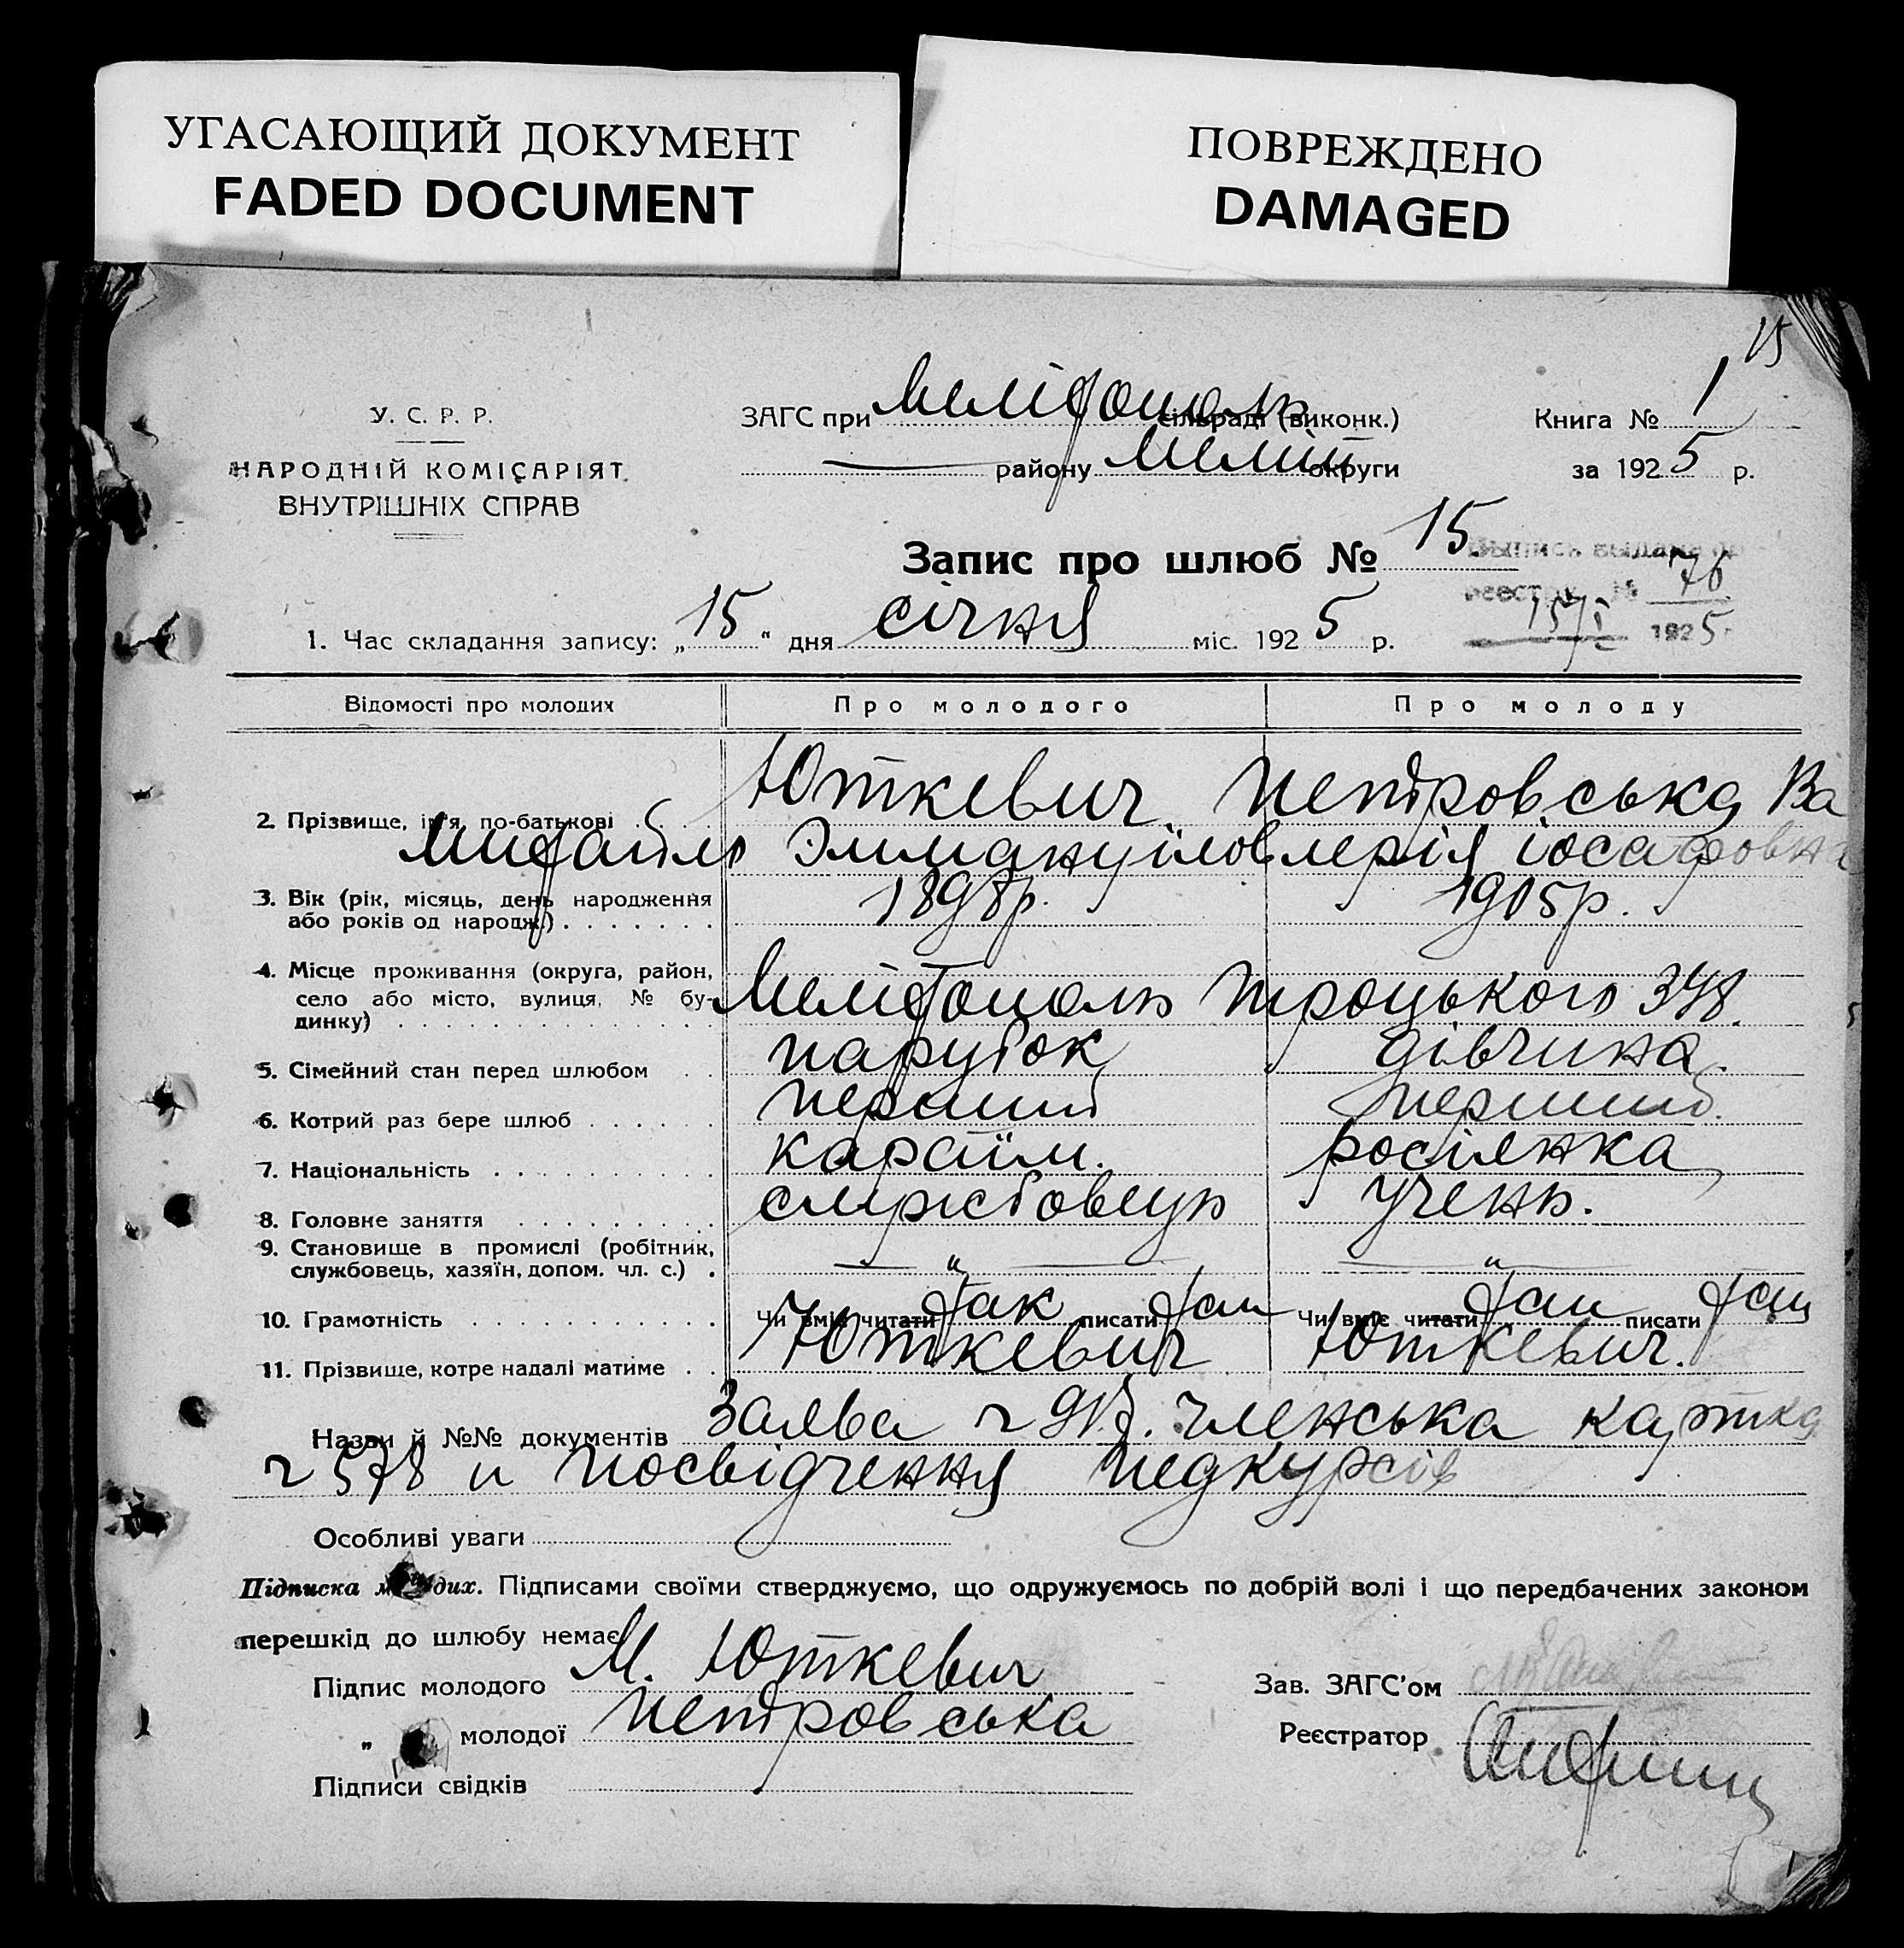 УГАСАЮЩИЙ ДОКУМЕНТ
FADED DOCUMENT
ПОВРЕЖДЕНО
DAMAGED
15
У. С. Р. Р.
НАРОДНІЙ КОМІСАРІЯТ
ВНУТРІШНІХ СПРАВ
ЗАГС при Мелітополь сільраді (виконк.)
району Меліт округи
Книга № 1
за 1925 р.
Запис про шлюб № 15
Выпись выдана
реестр № 76
15/I 1925
1. Час складання запису: „15" дня січня міс. 1925 р.
Відомості про молодих Про молодого Про молоду
2. Прізвище, ім'я, по-батькові Юткевич Петровська Ва
Михайло Эммануілов лерія іосафовна
3. Вік (рік, місяць, день народження або років од народж.) 1898р. 1905р.
4. Місце проживання (округа, район,
село або місто, вулиця, № бу-
динку) Мелітополь Троцького 348.
5. Сімейний стан перед шлюбом парубок дівчина
6. Котрий раз бере шлюб перший перший.
7. Національність караїм. росіянка
8. Головне заняття службовець учень.
9. Становище в промислі (робітник,
службовець, хазяїн, допом. чл. с.) — " — — " —
10. Грамотність Чи вміє читати так писати так Чи вміє читати так писати так
11. Прізвище, котре надалі матиме Юткевич Юткевич.
Назви й №№ документів Заява членська картка
578 и посвідчення педкурсів
Особливі уваги
Підписка молодих. Підписами своїми стверджуємо, що одружуємось по добрій волі і що передбачених законом
перешкід до шлюбу немає
Підпис молодого М. Юткевич
„ молодої Петровська
Підписи свідків
Зав. ЗАГС'ом
Реєстратор